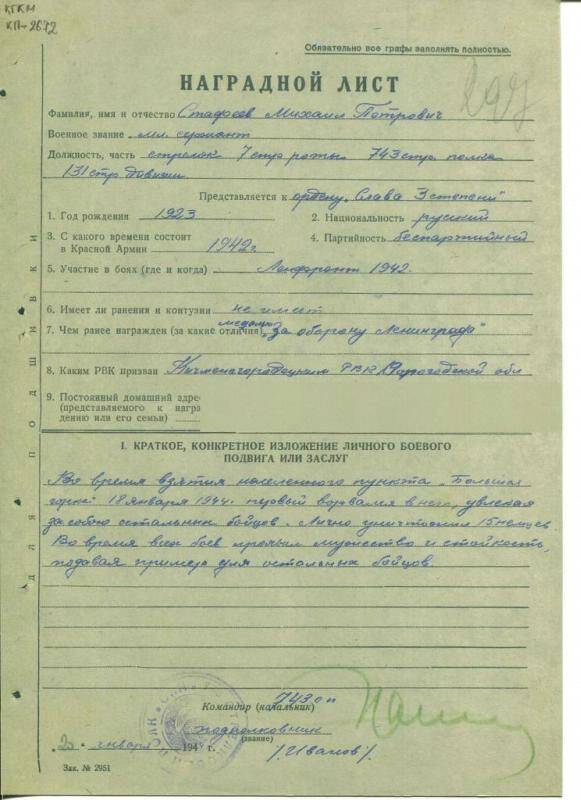 КГКМ
КП-2672
Обязательно все графы заполнять полностью.
НАГРАДНОЙ ЛИСТ
Фамилия, имя и отчество Стафеев Михаил Петрович
Военное звание мл. сержант
Должность, часть стрелок 7 стр роты 743 стр полка
131 стр дивизии
Представляется к ордену "Слава 3 степени"
1. Год рождения 1923 2. Национальность русский
3. С какого времени состоит
в Красной Армии 1942г. 4. Партийность беспартийный
5. Участие в боях (где и когда) Ленфронт 1942.
6. Имеет ли ранения и контузии не имеет
7. Чем ранее награжден (за какие отличия) медалью "За оборону Ленинграда"
8. Каким РВК призван Кичменгородецким РВК Вологодской обл
9. Постоянный домашний адре
(представляемого к награ
дению или его семьи)
Для подшивки
I. КРАТКОЕ, КОНКРЕТНОЕ ИЗЛОЖЕНИЕ ЛИЧНОГО БОЕВОГО
ПОДВИГА ИЛИ ЗАСЛУГ
Во время взятия населенного пункта "Большая
горка" 18 января 1944г. первый ворвался в него, увлекая
за собою остальных бойцов. Лично уничтожил 15 немцев.
Во время всех боев проявил мужество и стойкость,
подавая пример для остальных бойцов.
743 сп
Командир (начальник)
подполковник
(звание)
января 1944 г. /Иванов/.
Зак. № 2951